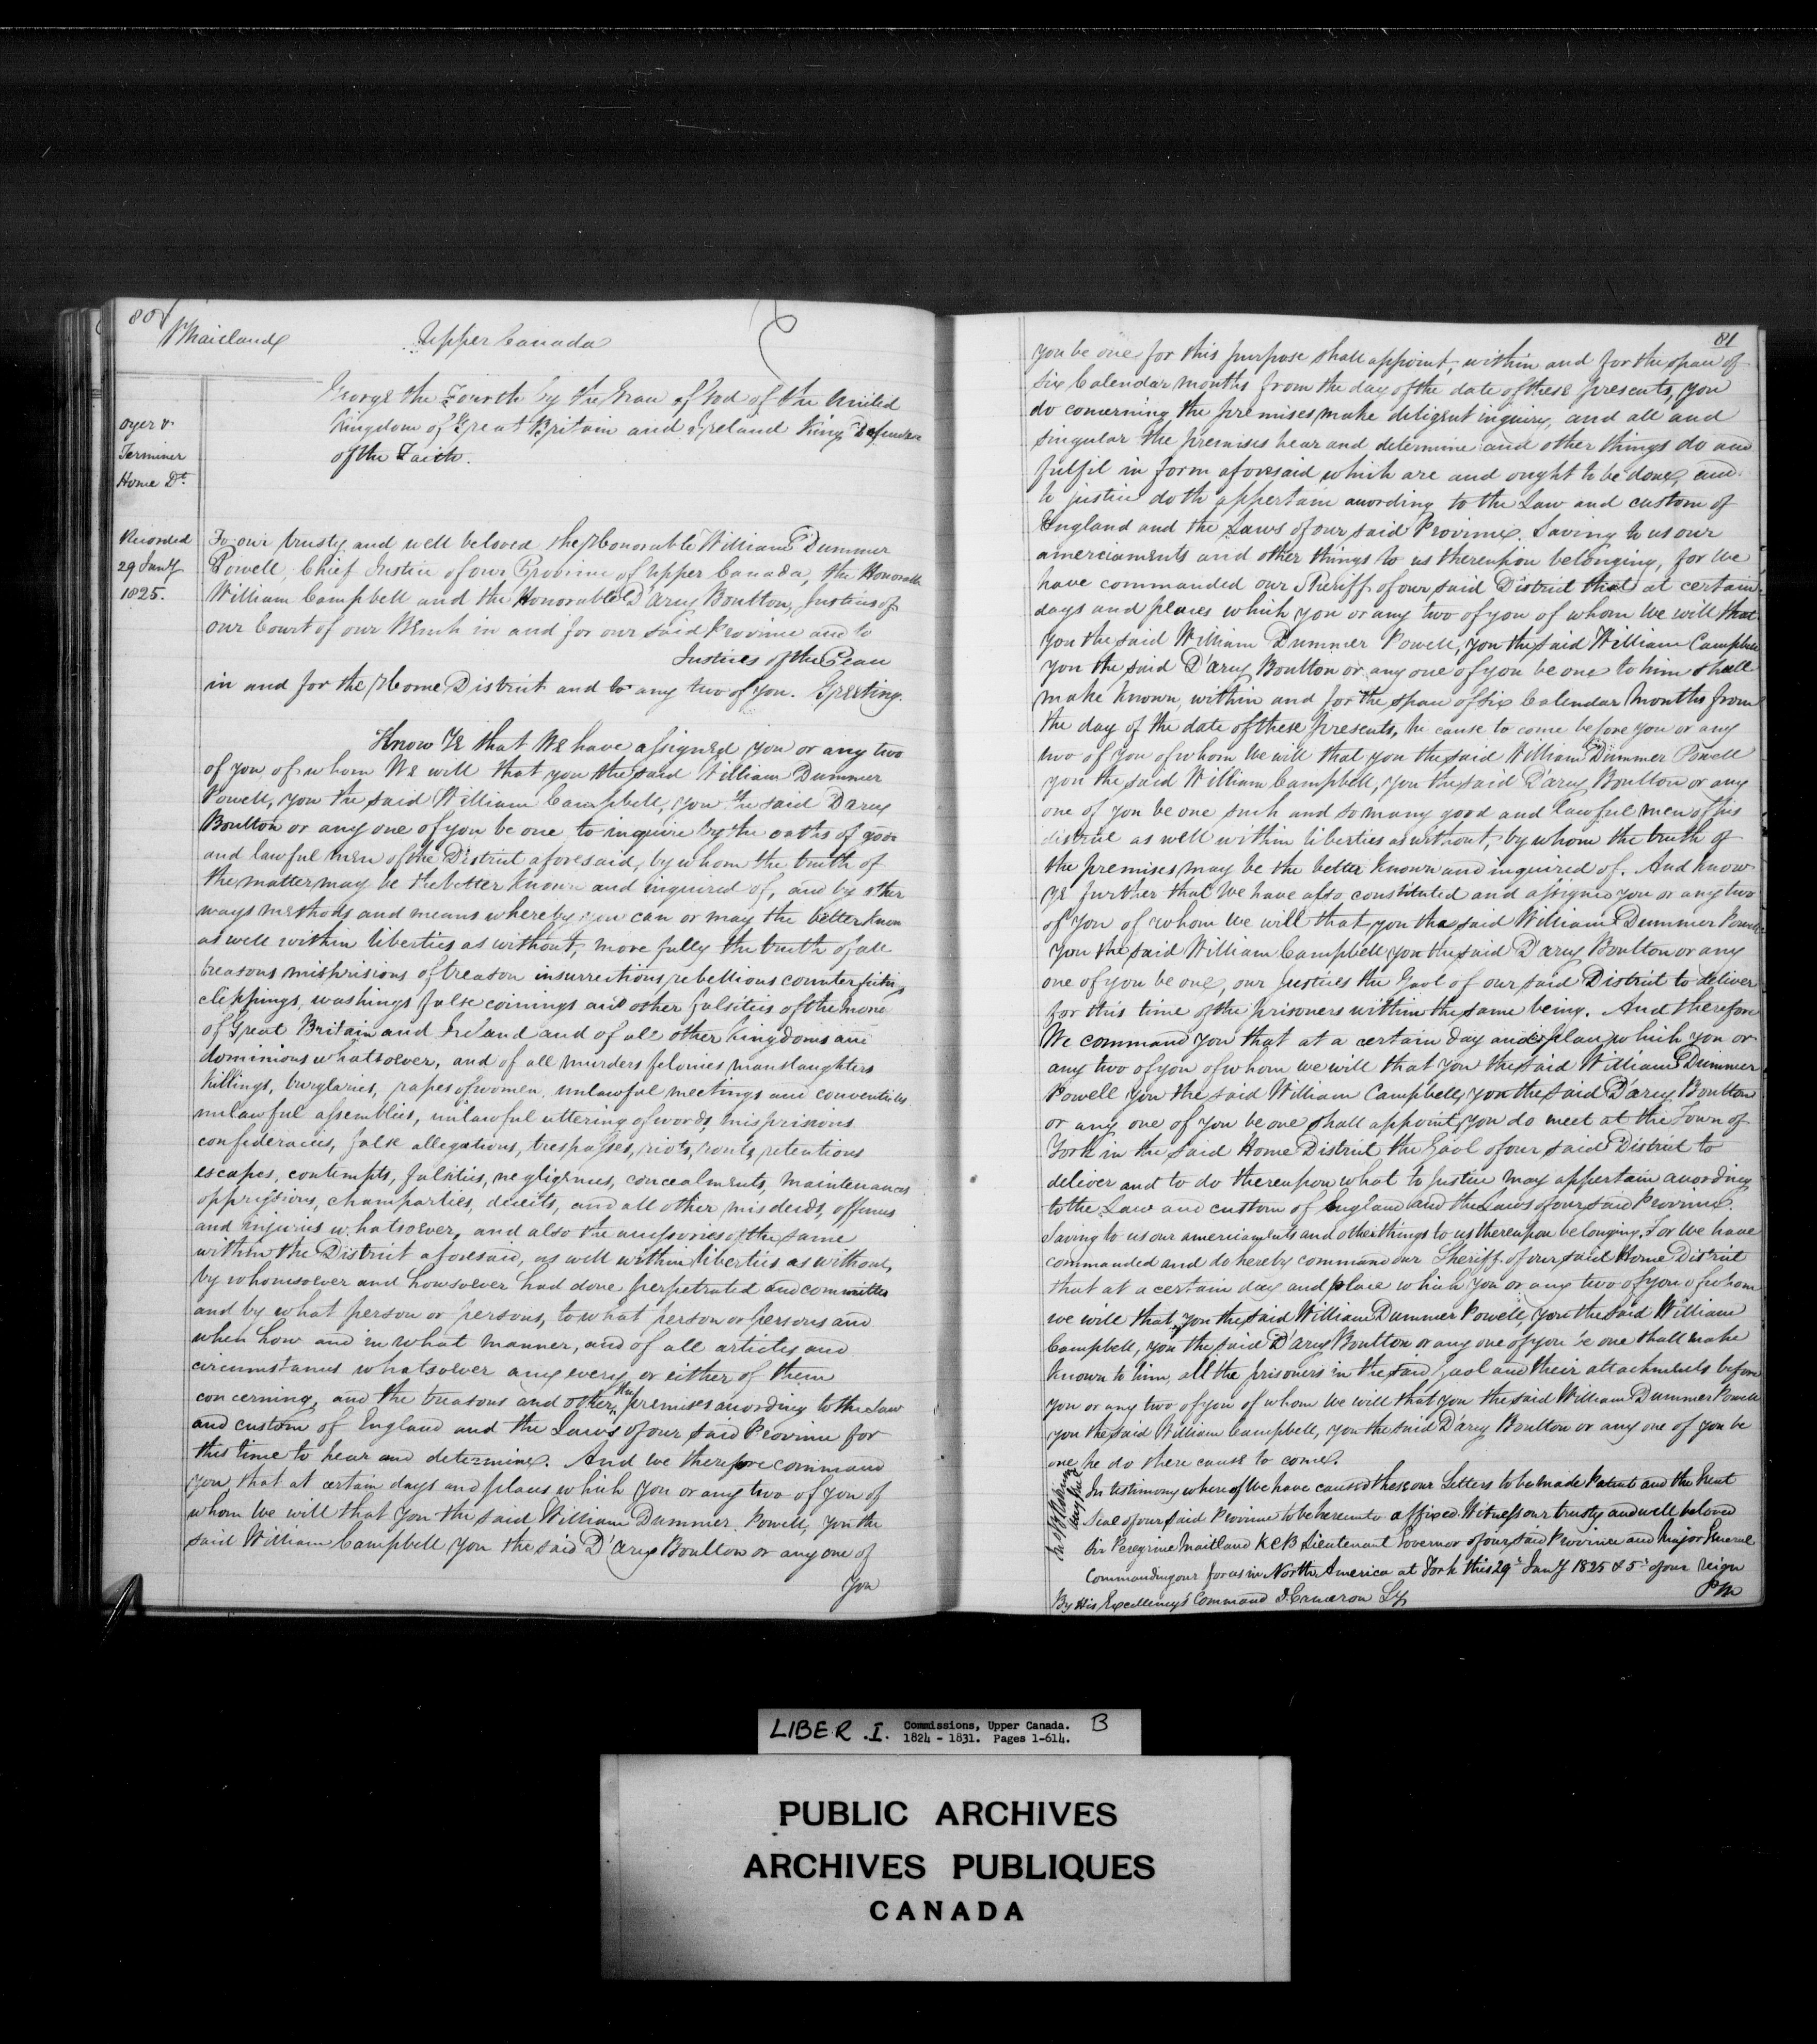 80
P Maitland
Upper Canada
George the Fourth by the Grace of God of the United
Kingdom of Great Britain and Ireland King Defender
of the Faith.
Oyer &
Terminer
Home Dt
Recorded
29 Jany
1825.
To our trusty and well beloved the Honorable William Dummer
Powell, Chief Justice of our Province of Upper Canada, the Honorable
William Campbell and the Honorable D'Arcy Boulton, Justices of
our Court of our Bench in and for our said Province and to
Justices of the Peace
in and for the Home District and to any two of you. Greeting.
Know Ye that We have assigned you or any two
of you of whom We will that you the said William Dummer
Powell, you the said William Campbell, you the said Darcy
Boulton or any one of you be one to inquire by the oaths of good
and lawful men of the District aforesaid, by whom the truth of
the matter may be the better known and inquired of, and by other
ways methods and means whereby you can or may the better know
as well within liberties as without, more fully the truth of all
treasons misprisions of treason insurrections rebellions counterfeitings
clippings, washings false coinings and other falsities of the money
of Great Britain and Ireland and of all other Kingdoms and
dominions whatsoever, and of all murders felonies manslaughters
killings, burglaries, rapes of women, unlawful meetings and conventicles
unlawful assemblies, unlawful uttering of words, misprisions
confederacies, false allegations, trespasses, riots, routs, retentions
escapes, contempts, falsities, negligences, concealments, maintenances
oppressions, champarties, deceits, and all other misdeeds, offences
and injuries whatsoever, and also the accessories of the same
within the District aforesaid, as well within liberties as without,
by whomsoever and howsoever had done perpetrated and committed
and by what person or persons, to what person or persons and
when how and in what manner, and of all articles and
circumstances whatsoever any every or either of them
concerning, and the treasons and other the premises according to the Law
and custom of England and the Laws of our said Province for
this time to hear and determine. And we therefore command
you that at certain days and places which you or any two of you of
whom We will that you the said William Dummer Powell, you the
said William Campbell, you the said D'arcy Boulton or any one of
you
81
you be one for this purpose shall appoint, within and for the space of
Six Calendar Months from the day of the date of these presents, you
do concerning the premises make diligent inquiry, and all and
singular the premises hear and determine and other things do and
fulfil in form aforesaid which are and ought to be done, and
to justice doth appertain according to the Law and custom of
England and the Laws of our said Province. Saving to us our
amerciaments and other things to us thereupon belonging, for We
have commanded our Sheriff of our said District that at certain
days and places which you or any two of you of whom We will that
you the said William Dummer Powell, you the said William Campbell
you the said D'arcy Boulton or any one of you be one to him shall
make known, within and for the space of Six Calendar Months from
the day of the date of these presents, he cause to come before you or any
two of you of whom We will that you the said William Dummer Powell
you the said William Campbell, you the said D'arcy Boulton or any
one of you be one such and so many good and lawful men of his
district as well within liberties as without, by whom the truth of
the premises may be the better known and inquired of. And know
ye further that We have also constituted and assigned you or any two
of you of whom we will that you the said William Dummer Powell
you the said William Campbell you the said D'arcy Boulton or any
one of you be one, our Justices the Gaol of our said District to deliver
for this time of the prisoners within the same being. And therefore
We command you that at a certain day and place which you or
any two of you of whom we will that you the said William Dummer
Powell you the said William Campbell, you the said D'arcy Boulton
or any one of you be one shall appoint, you do meet at the Town of
York in the said Home District the Gaol of our said District to
deliver and to do thereupon what to Justice may appertain according
to the Law and custom of England and the Laws of our said Province.
Saving to us our amerciaments and other things to us thereupon belonging, For We have
commanded and do hereby command our Sheriff of our said Home District
that at a certain day and place which you or any two of you of whom
we will that you the said William Dummer Powell, you the said William
Campbell, you the said D'arcy Boulton or any one of you be one shall make
known to him, all the prisoners in the said Gaol and their attachments before
you or any two of you of whom We will that you the said William Dummer Powell
you the said William Campbell, you the said D'arcy Boulton or any one of you be
one he do there cause to come.
In testimony whereof We have caused these our Letters to be made Patent and the Great
Seal of our said Province to be hereunto affixed. Witness our trusty and well beloved
Sir Peregrine Maitland K.C.B Lieutenant Governor of our said Province and Major General
Commanding our forces in North America at York this 29th Jany 1825 & 5th of our reign
PM
By His Excellency's Command D Cameron Sy
LIBER .I. Commissions, Upper Canada. B
1824 - 1831. Pages 1-614.
PUBLIC ARCHIVES
ARCHIVES PUBLIQUES
CANADA